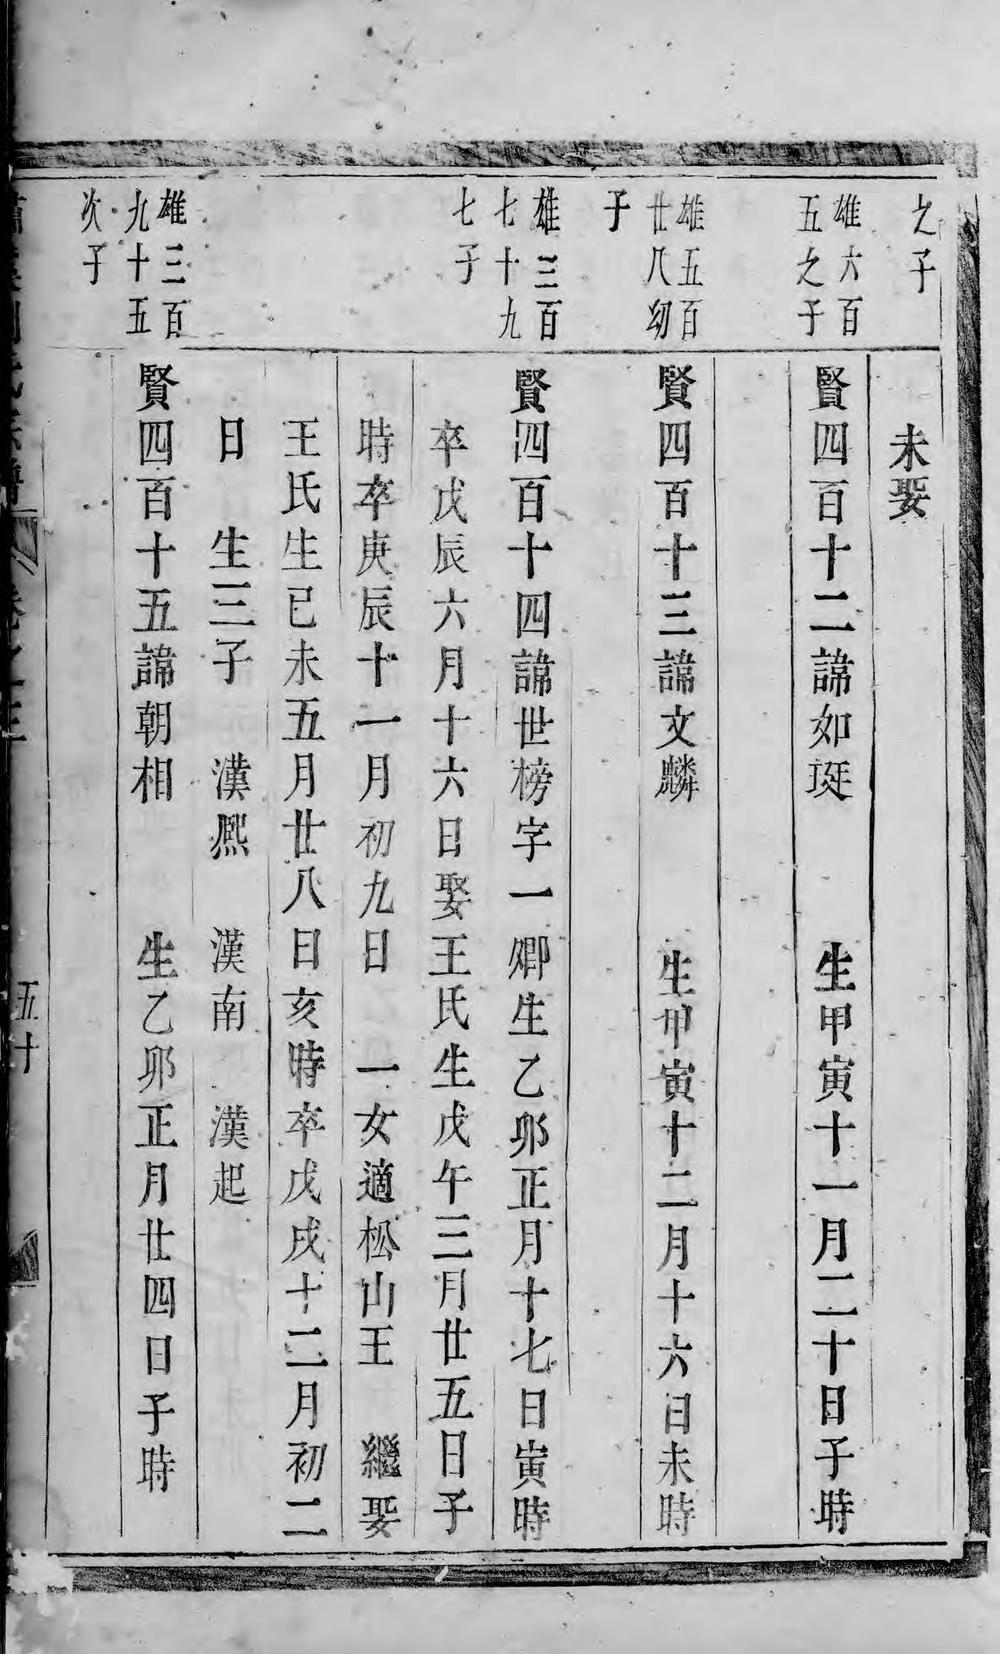 之子
未娶
雄六百
五之子
賢四百十二諱如珽　生甲寅十一月二十日子時
雄五百
廿八幼
子
賢四百十三諱文麟　生甲寅十二月十六日未時
雄三百
七十九
七子
賢四百十四諱世榜字一卿生乙卯正月十七日寅時
卒戊辰六月十六日娶王氏生戊午三月廿五日子
時卒庚辰十一月初九日　一女適松山王　繼娶
王氏生已未五月廿八日亥時卒戊戌十二月初二
日　生三子　漢熈　漢南　漢起
雄三百
九十五
次子
賢四百十五諱朝相　生乙卯正月廿四日子時
五十